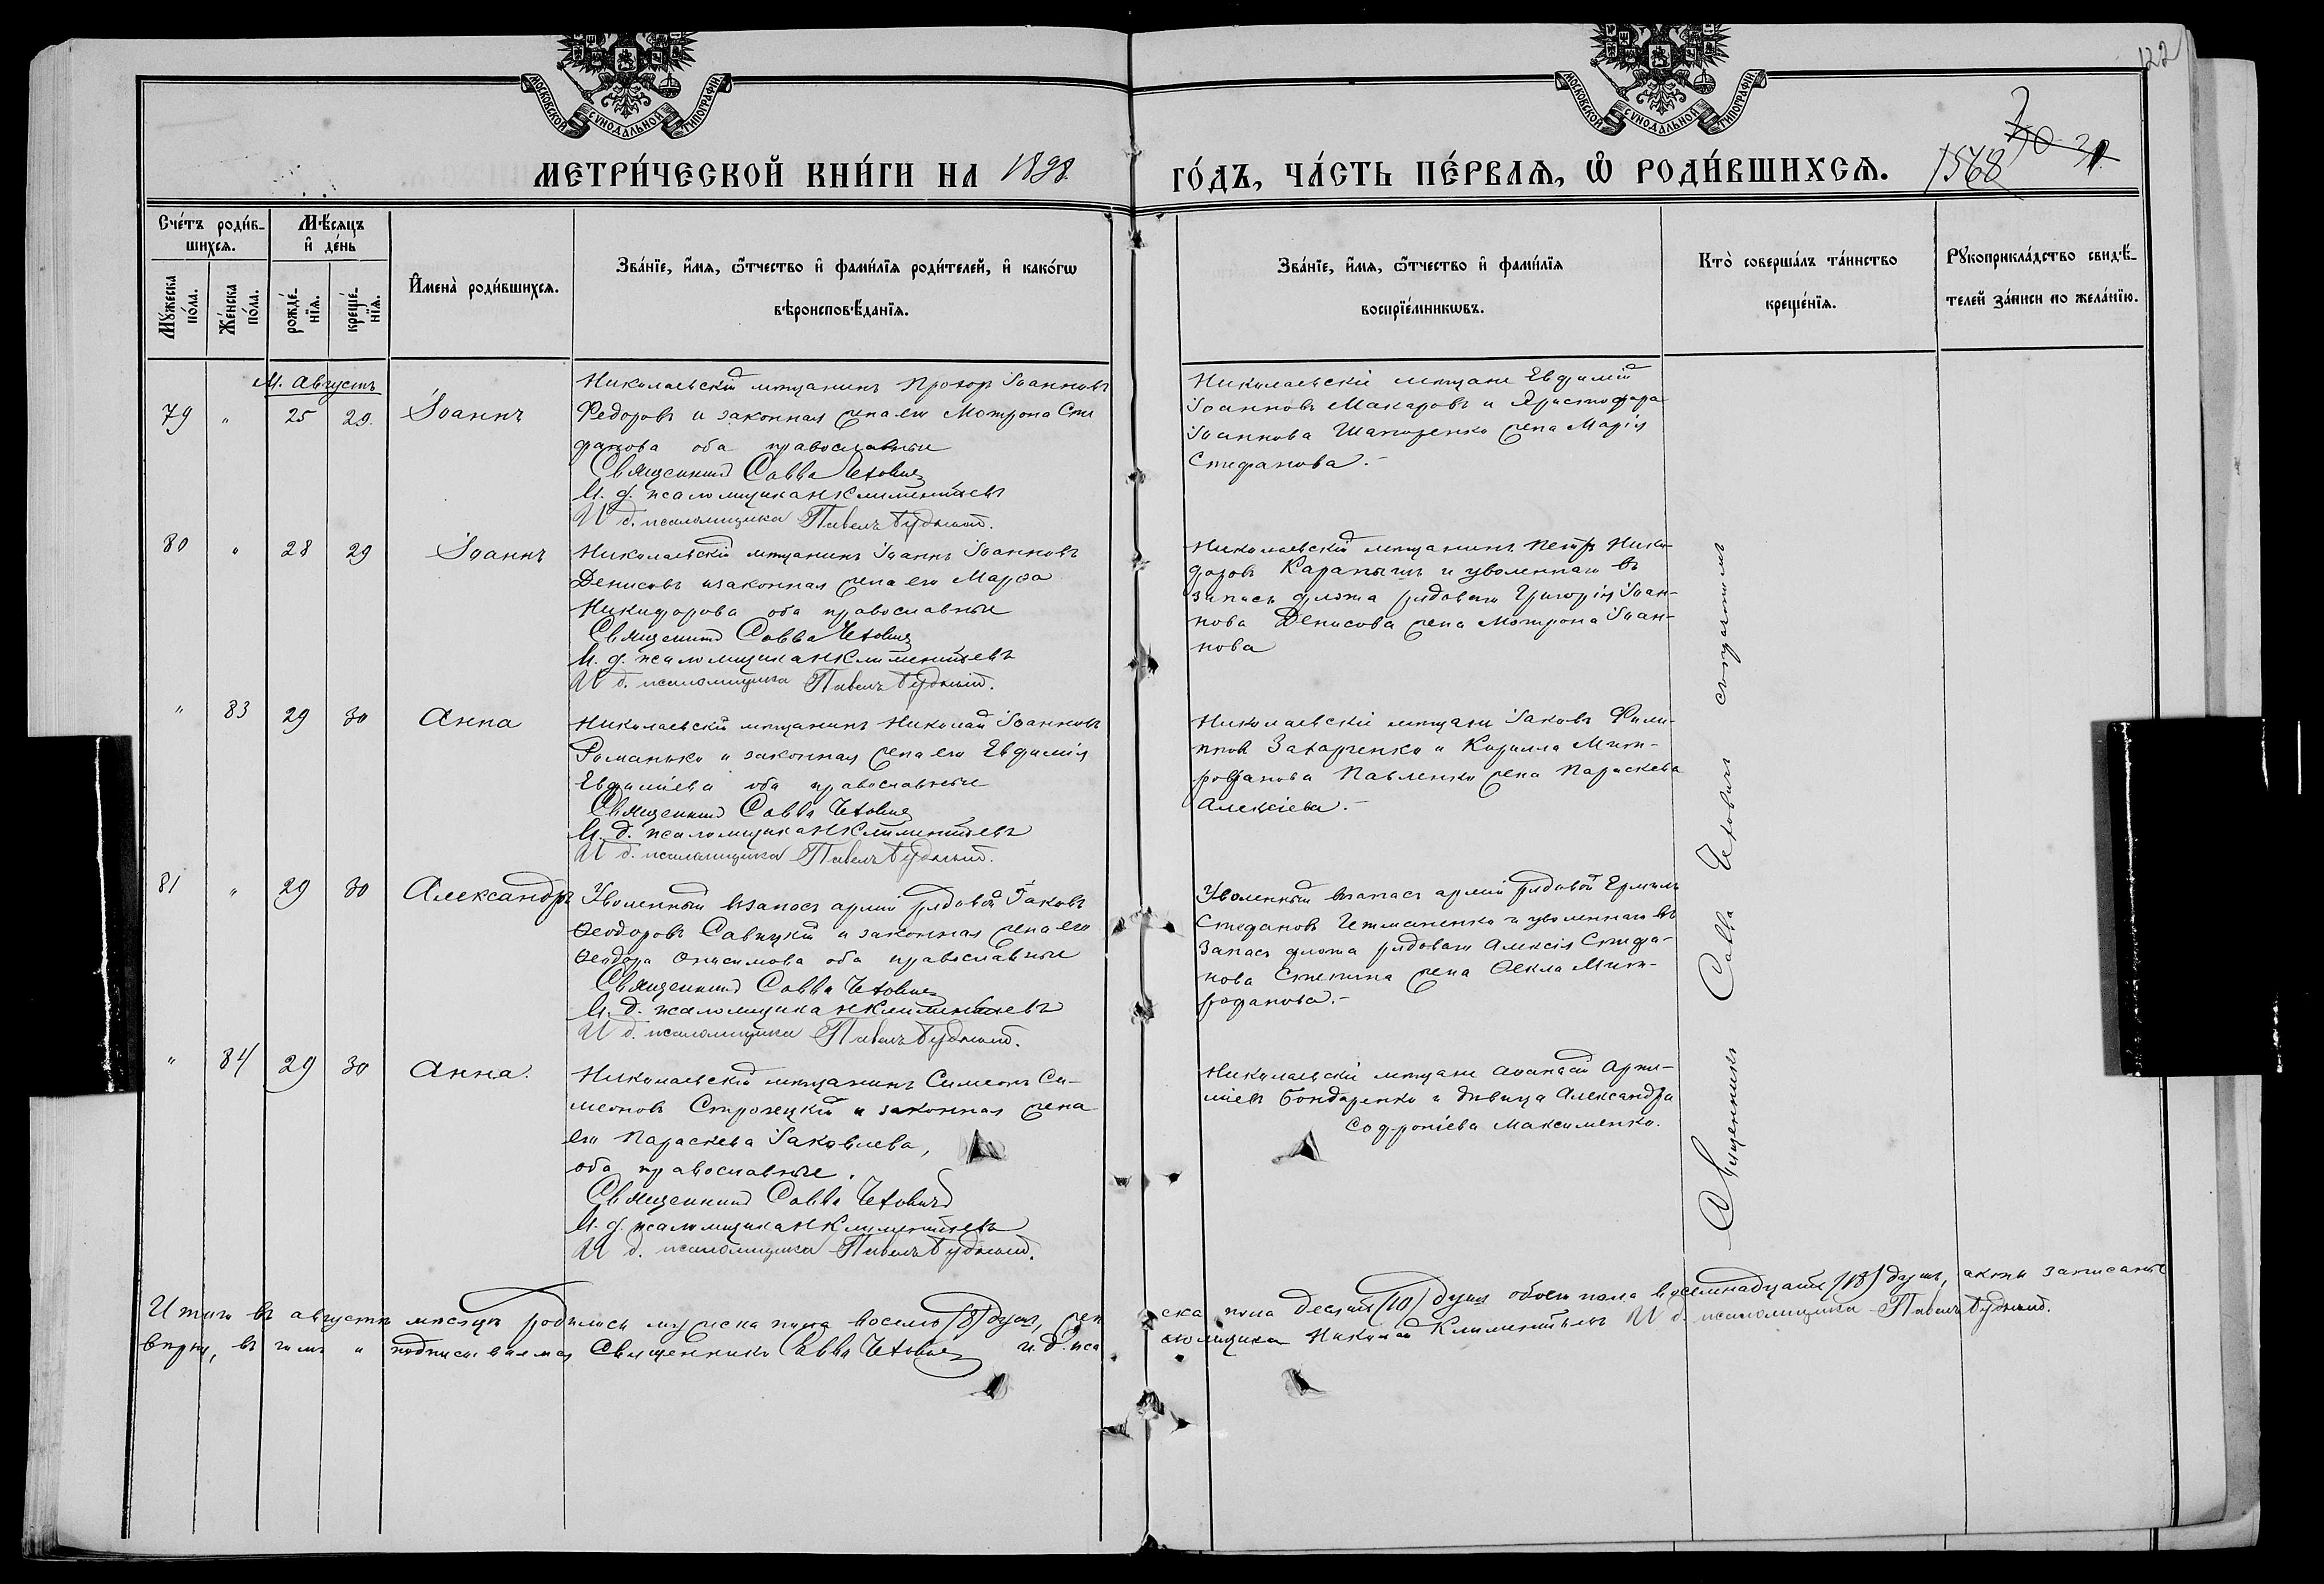 МОСКОВСКОЙ СУНОДАЛЬНОЙ ТИПОГРАФІИ
МОСКОВСКОЙ СУНОДАЛЬНОЙ ТИПОГРАФІИ
122
МЕТРИ́ЧЕСКОЙ КНИ́ГИ НА 1898.
ГО́ДЪ, ЧА́СТЬ ПЕ́РВАѦ, Ѽ РОДИ́ВШИХСѦ.
1568
Сче́тъ роди́в-
шихсѧ.
Мѣ́сяцъ
и҆ де́нь
Мꙋ́жеска
по́ла.
Же́нска
по́ла.
рожде́-
нїѧ.
креще́-
нїѧ.
И҆мена̀ роди́вшихсѧ.
Зва́нїе, и҆́мѧ, ѻ҆́тчество и҆ фами́лїѧ роди́телей, и҆ како́гѡ
вѣроисповѣ́данїѧ.
Зва́нїе, и҆́мѧ, ѻ҆́тчество и҆ фами́лїѧ
воспрїе́мникѡвъ.
Кто̀ соверша́лъ та́инство
креще́нїѧ.
Рꙋкоприкла́дство свидѣ́-
телей за́писи по жела́нїю.
М. Августъ
79 " 25 29. Іоаннъ
Николаевскій мѣщанинъ Прохоръ Іоанновъ
Федоровъ и законная жена его Мотрона Сте
фанова оба православные
Священникъ Савва Чехович
И. д. псаломщика Н Климентьевъ
И д. псаломщика Павелъ Будный.
Николаевскіе мѣщане Евфимій
Іоанновъ Макаровъ и Христофора
Іоаннова Шапоренко жена Марія
Стефанова.-
80 " 28 29 Іоаннъ
Николаевскій мѣщанинъ Іоаннъ Іоанновъ
Денисовъ и законная жена его Марѳа
Никифорова оба православные
Священникъ Савва Чехович
И. д. псаломщика Н Климентьевъ
И д. псаломщика Павелъ Будный.
Николаевскій мѣщанинъ Петръ Ники-
форовъ и уволеннаго въ
запасъ флота рядоваго Григорія Іоан-
нова Денисова жена Мотрона Іоан-
нова
" 83 29 30 Анна
Николаевскій мѣщанинъ Николай Іоанновъ
Романько и законная жена его Евфимія
Евфиміева оба православные
Священникъ Савва Чехович
И. д. псаломщика Н Климентьевъ
И д. псаломщика Павелъ Будный.
Николаевскіе мѣщане Іаковъ Фили-
пповъ Захарченко и Кирилла Мит-
рофанова Павленко жена Параскева
Алексіева.-
81 " 29 30 Александръ
Уволенный въ запасъ арміи рядовой Іаковъ
Ѳеодоровъ Савицкій и законная жена его
Ѳеодора Онисимова оба православные
Священникъ Савва Чехович
И. д. псаломщика Н Климентьевъ
И д. псаломщика Павелъ Будный.
Уволенный въ запасъ арміи рядовой Ермилъ
Стефановъ Гетманенко и уволеннаго въ
запасъ флота рядоваго Алексія Стефа-
нова Степина жена Ѳекла Мит-
рофанова.-
" 84 29 30 Анна.
Николаевскій мѣщанинъ Симеонъ Си-
меоновъ и законная жена
его Параскева Іаковлева,
оба православные.
Священникъ Савва Чеховичъ
И. д. псаломщика Н Климентьевъ
И д. псаломщика Павелъ Будный.
Николаевскіе мѣщане Аѳанасій Арте-
міевъ Бондаренко и дѣвица Александра
Софроніева Максименко.
Священникъ Савва Чеховичъ
Итого въ августѣ мѣсяцѣ родилось мужеска пола восемь (8) душъ, жен ска пола десять (10) душъ обоего пола восемнадцать (18) душъ, а кои записаны
вѣрно, въ чемъ и подписываемся Священникъ Савва Чехович и. д. пса ломщика Николай Климентьевъ И д. псаломщика Павелъ Будный.